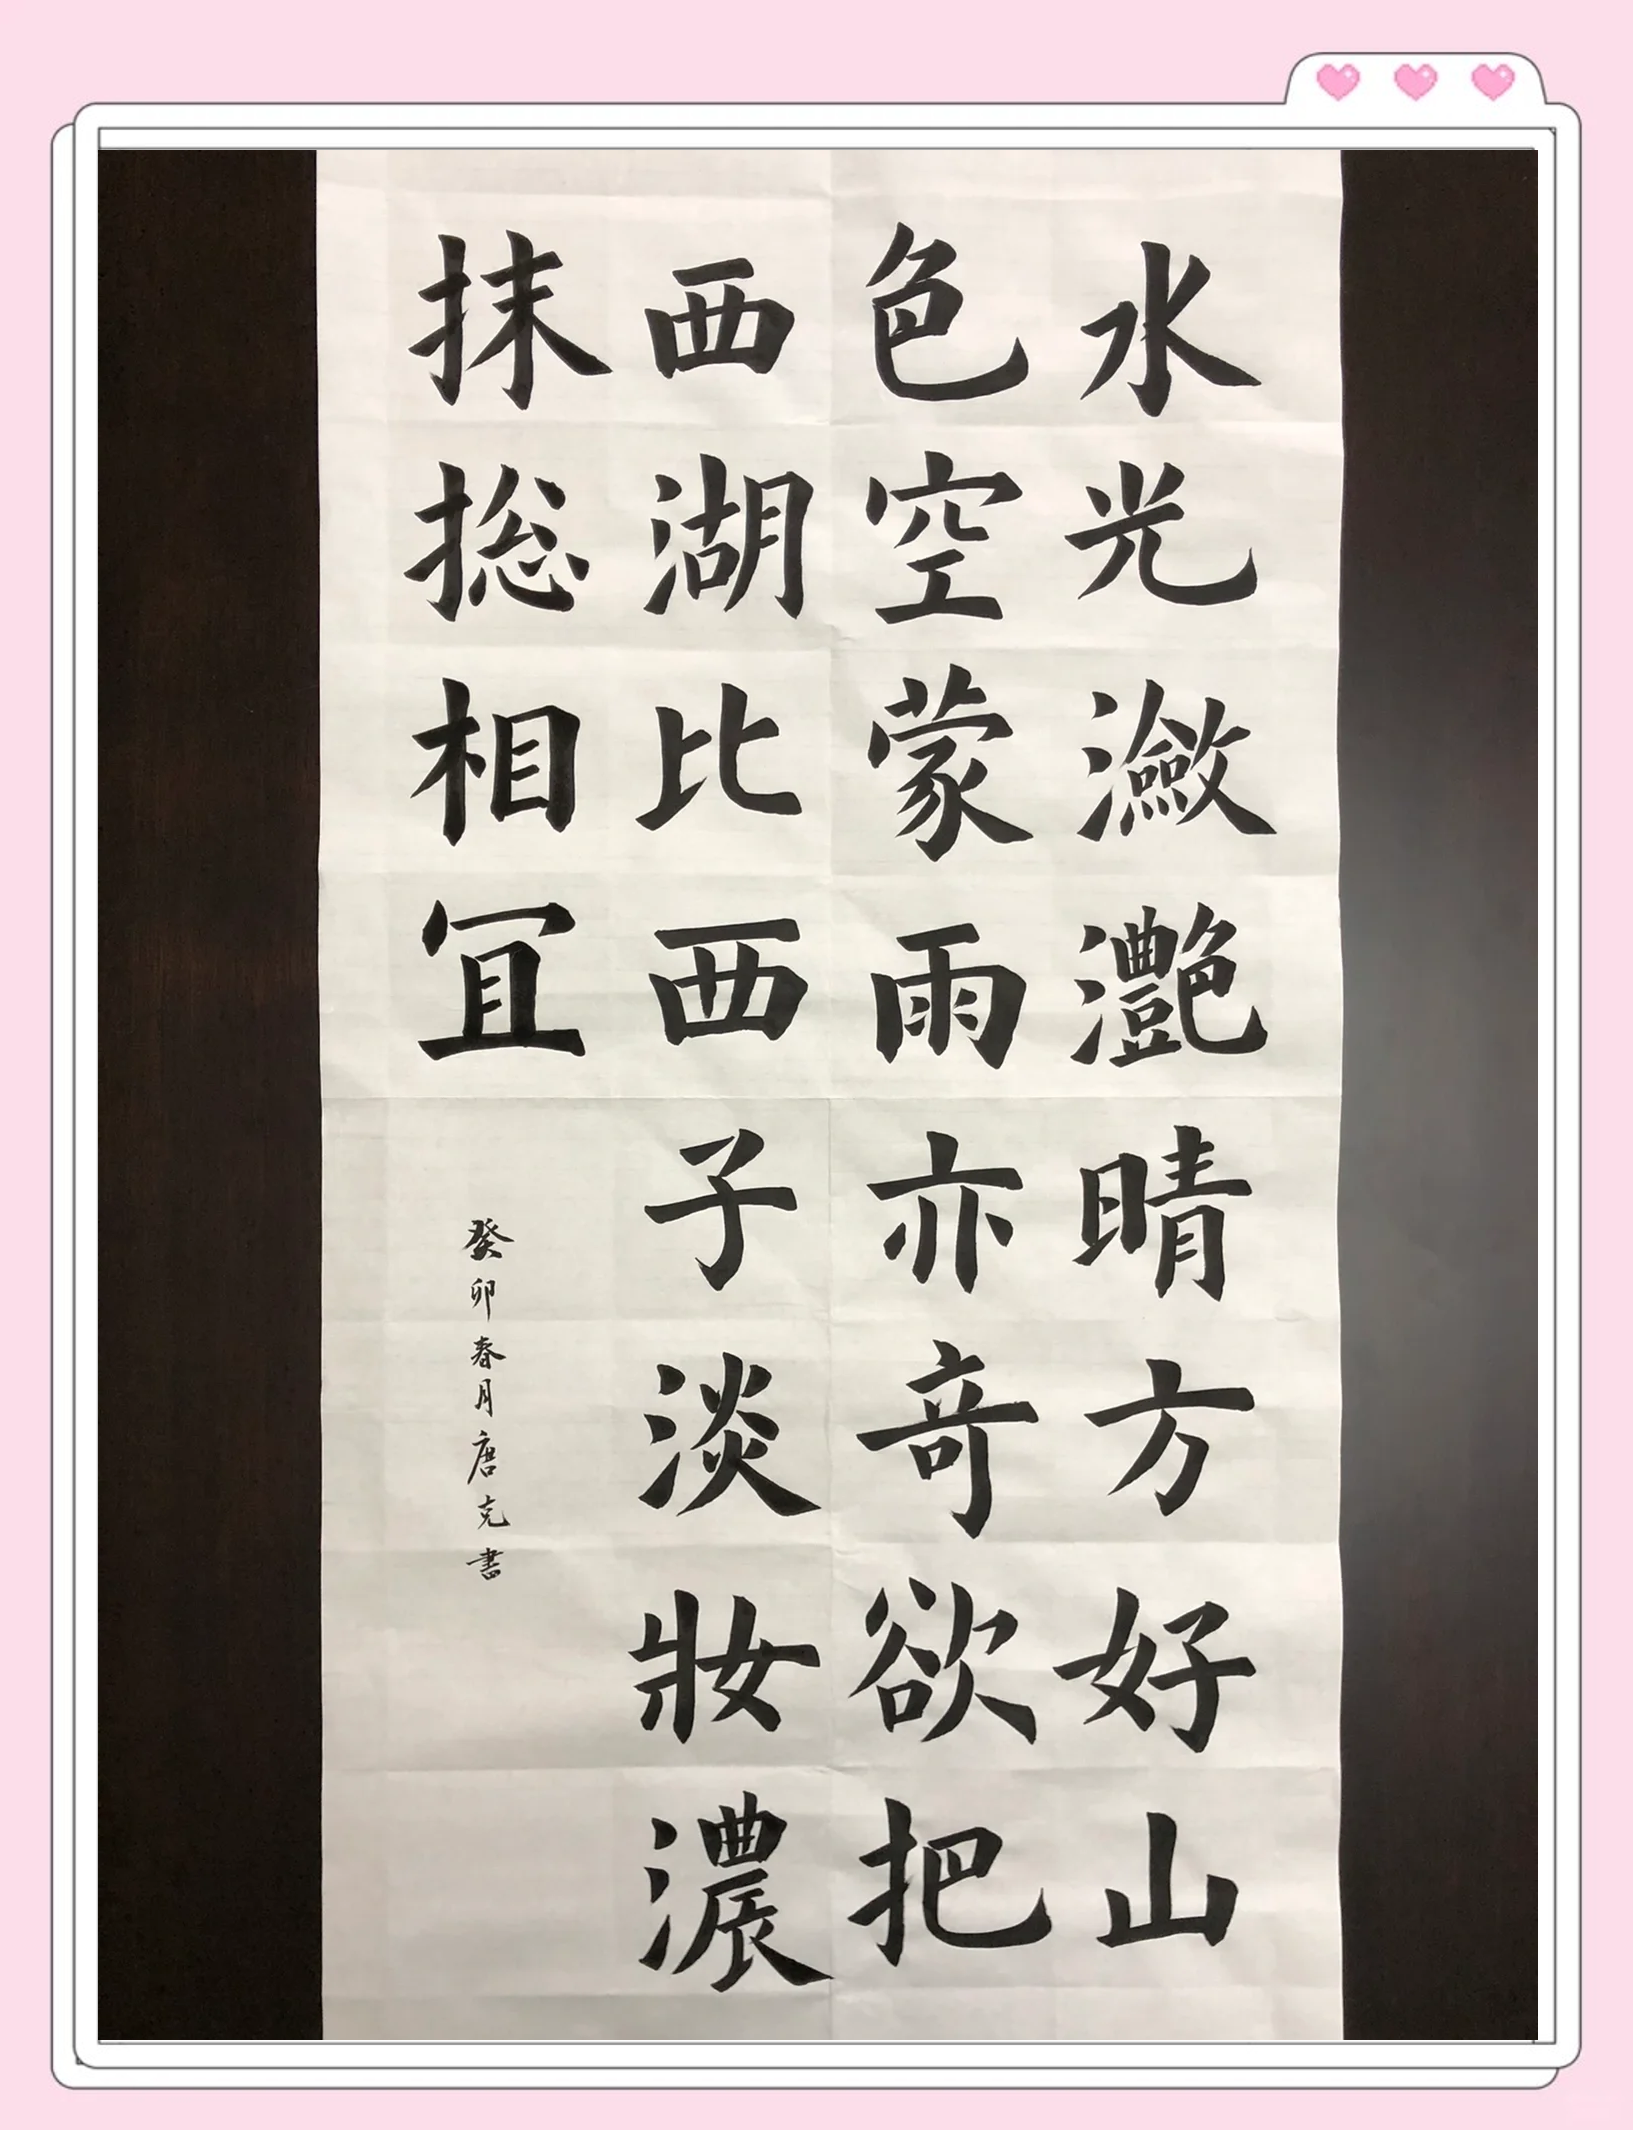 水光瀲灔晴方好山
色空蒙雨亦奇欲把
西湖比西子淡妝濃
抹捴相冝
癸卯春月唐克書